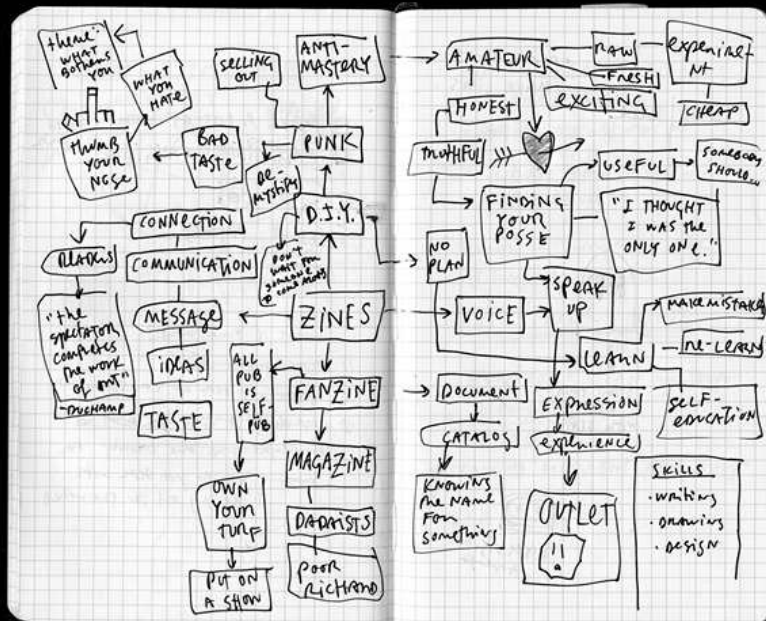 theme:
WHAT
BOTHERS
YOU
WHAT
YOU
HATE
THUMB
YOUR
NOSE
BAD
TASTE
SELLING
OUT
ANTI-
MASTERY
PUNK
DE-
MYSTIFY
D.I.Y.
DON'T
WAIT FOR
SOMEONE
TO COME ALONG
CONNECTION
READERS
COMMUNICATION
"the
spectator
completes
the work
of art"
-DUCHAMP
MESSAGE
IDEAS
TASTE
ZINES
ALL
PUB
IS
SELF-
PUB
FANZINE
MAGAZINE
DADAISTS
POOR
RICHARD
OWN
YOUR
TURF
PUT ON
A SHOW
AMATEUR
RAW
experiment
FRESH
EXCITING
CHEAP
HONEST
TRUTHFUL
USEFUL
SOMEBODY
SHOULD...
FINDING
YOUR
POSSE
"I THOUGHT
I WAS the
ONLY ONE."
NO
PLAN
SPEAK
UP
VOICE
MAKE MISTAKES
LEARN
RE-LEARN
SELF-
EDUCATION
DOCUMENT
CATALOG
KNOWING
the NAME
FOR
something
EXPRESSION
experience
OUTLET
SKILLS
·WRITING
·DRAWING
·DESIGN